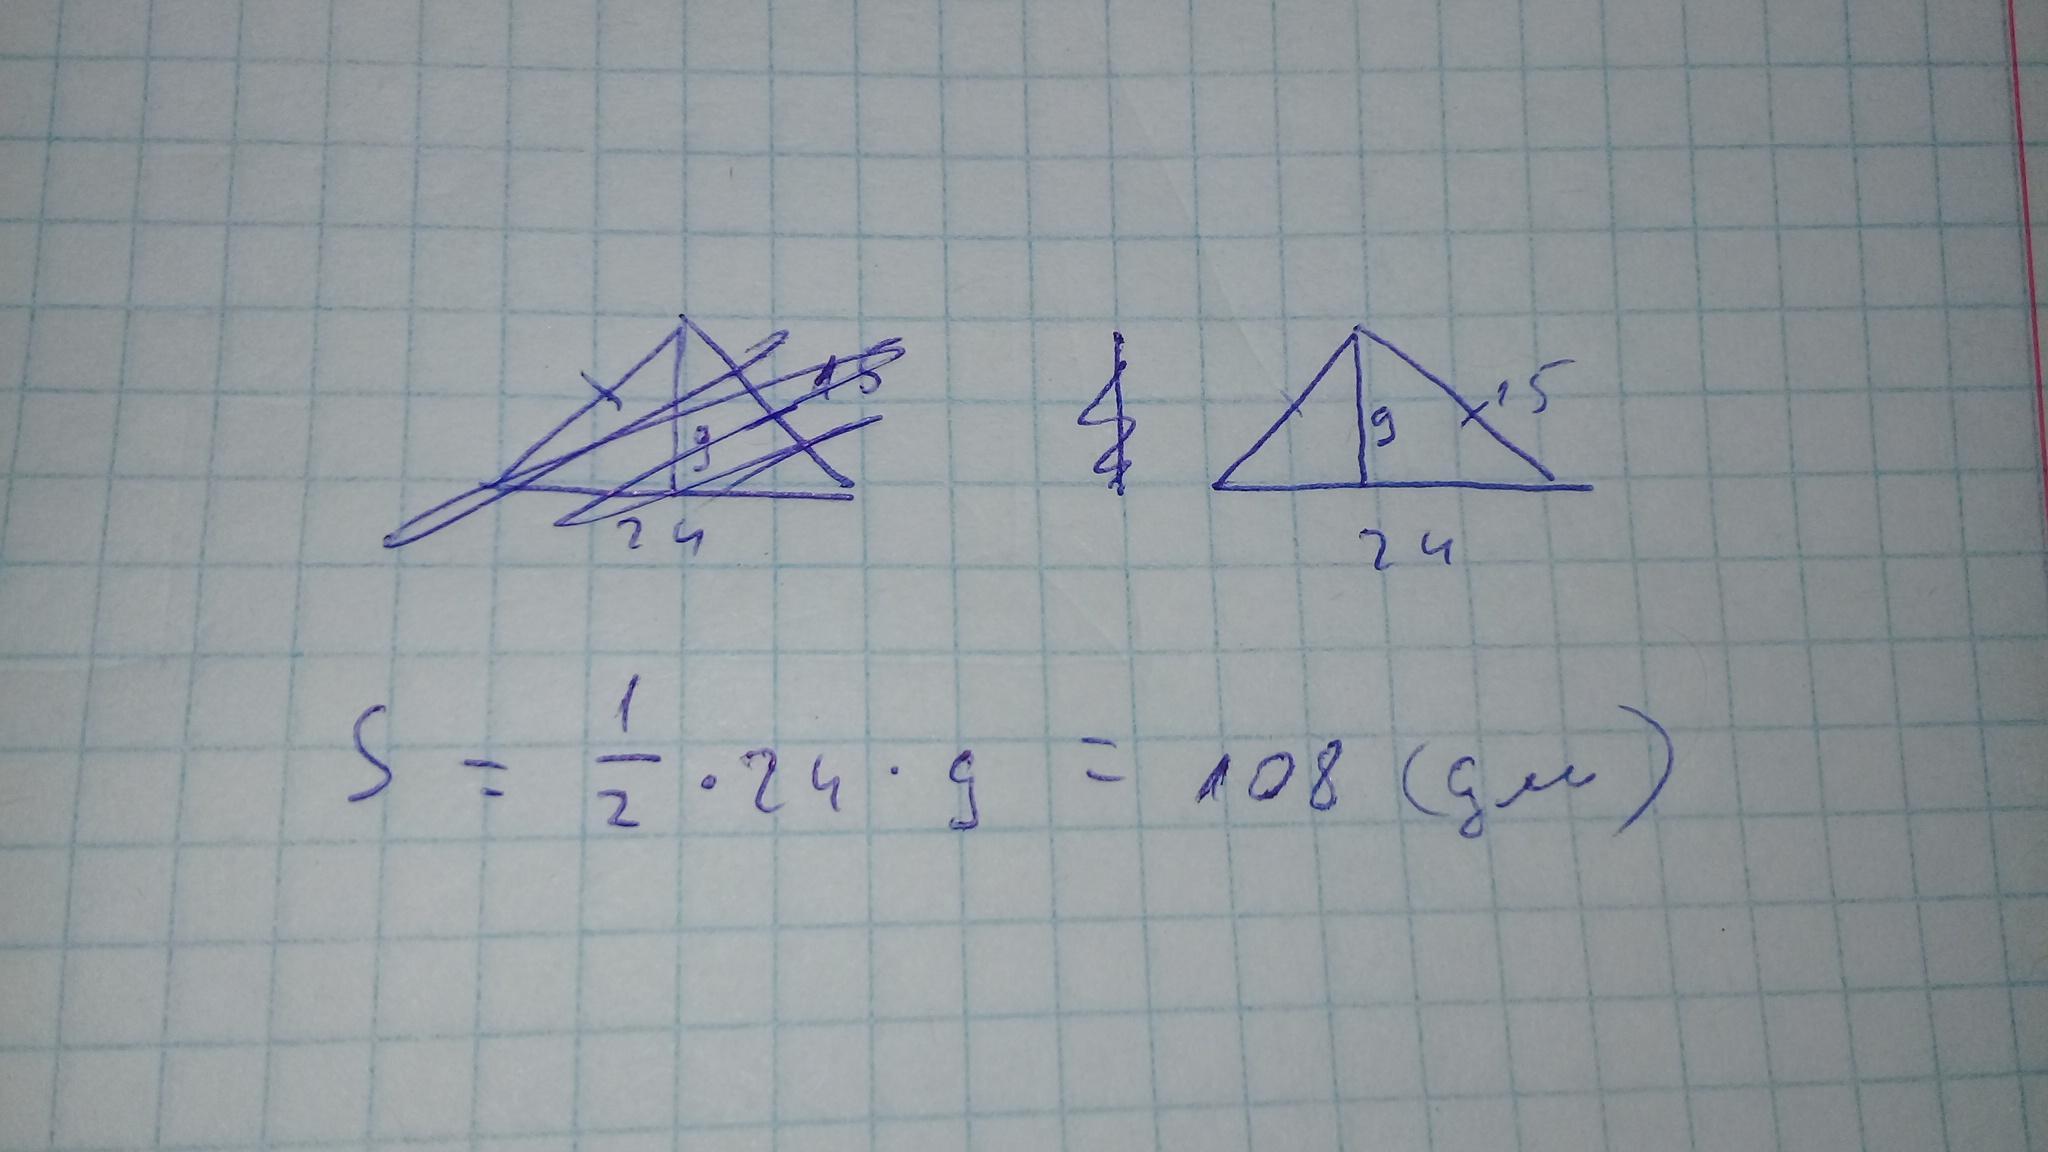 15
9
24
15
9
24
S = 1/2 · 24 · 9 = 108 (дм)